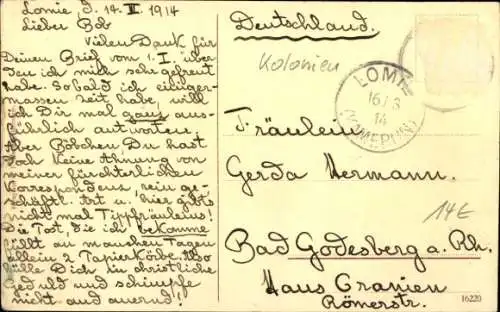 Lomie d. 14. III. 1914
Lieber Bob
Vielen Dank für
Deinen Brief vom 1. I über
den ich mich sehr gefreut
habe. Sobald ich einiger-
massen Zeit habe, will
ich Dir mal ganz aus-
führlich antworten.
Aber Böbchen, Du hast
doch keine Ahnung von
meiner fürchterlichen
Korrespondenz, rein ge-
schäftl. Art u. hier gibts
nicht mal Tippfräuleins!
Die Post, die ich bekomme
füllt an manchen Tagen
allein 2 Papierkörbe. Also
fülle Dich in christliche
Geduld und schimpfe
nicht auf
Deutschland.
Kolonien
LOMIE
16/3
14
(KAMERUN)
Fräulein
Gerda Hermann.
14E
Bad Godesberg a. Rh.
Haus Oranien
Römerstr.
16220